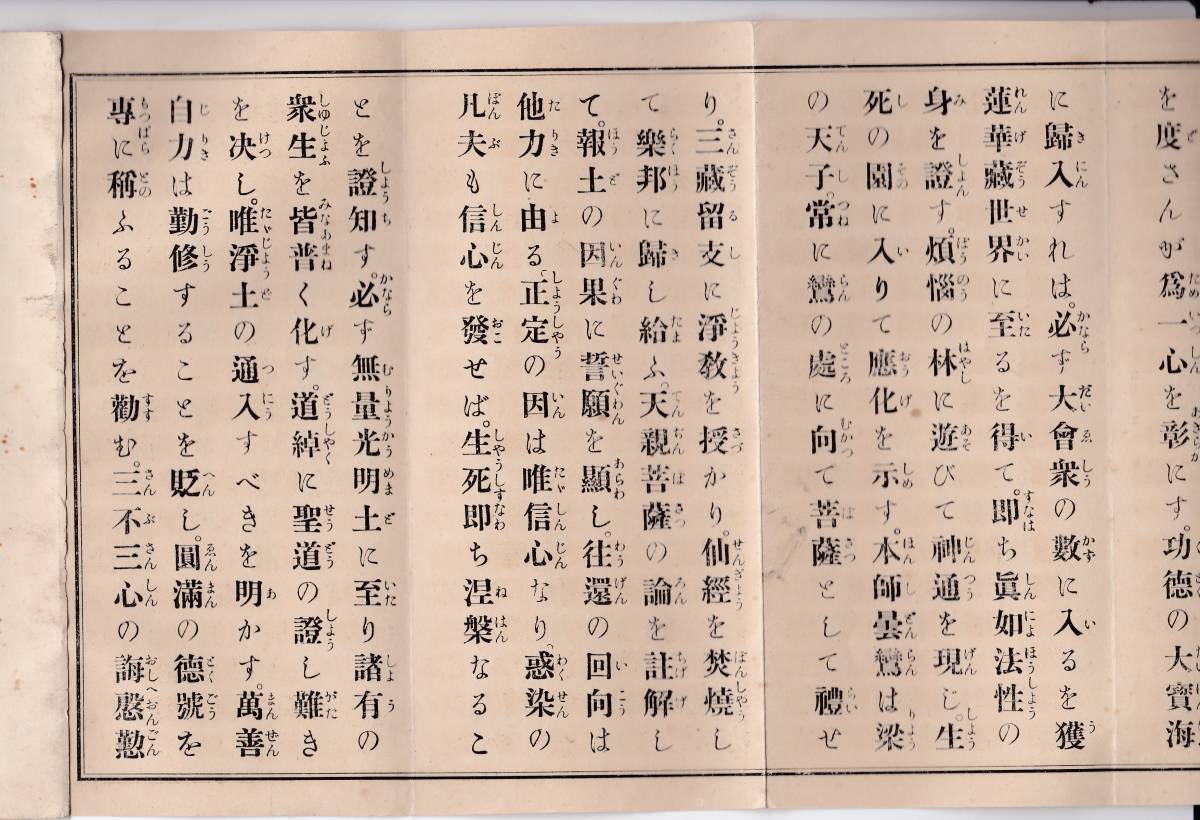 を度さんが爲一心を彰にす。功德の大寶海
に歸入すれは。必ず大會衆の數に入るを獲
蓮華藏世界に至るを得て。即ち眞如法性の
身を證す。煩惱の林に遊びて神通を現じ。生
死の園に入りて應化を示す。本師曇鸞は梁
の天子。常に鸞の處に向て菩薩として禮せ
り。三藏留支に淨敎を授かり。仙經を焚燒し
て樂邦に歸し給ふ。天親菩薩の論を註解し
て。報土の因果に誓願を顯し。往還の回向は
他力に由る。正定の因は唯信心なり。惑染の
凡夫も信心を發せば。生死即ち涅槃なるこ
とを證知す。必ず無量光明土に至り諸有の
衆生を皆普く化す。道綽に聖道の證し難き
を決し。唯淨土の通入すべきを明かす。萬善
自力は勤修することを貶し。圓滿の德號を
專に稱ふることを勸む。三不三心の誨慇懃